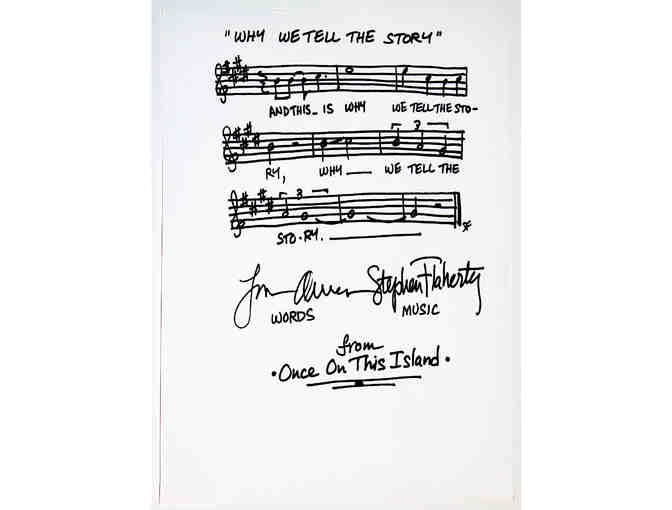 "WHY WE TELL THE STORY"
AND THIS_ IS WHY WE TELL THE STO-
3
RY, WHY — WE TELL THE
3
STO-RY. —
Stephen Flaherty
WORDS MUSIC
from
• Once On This Island •